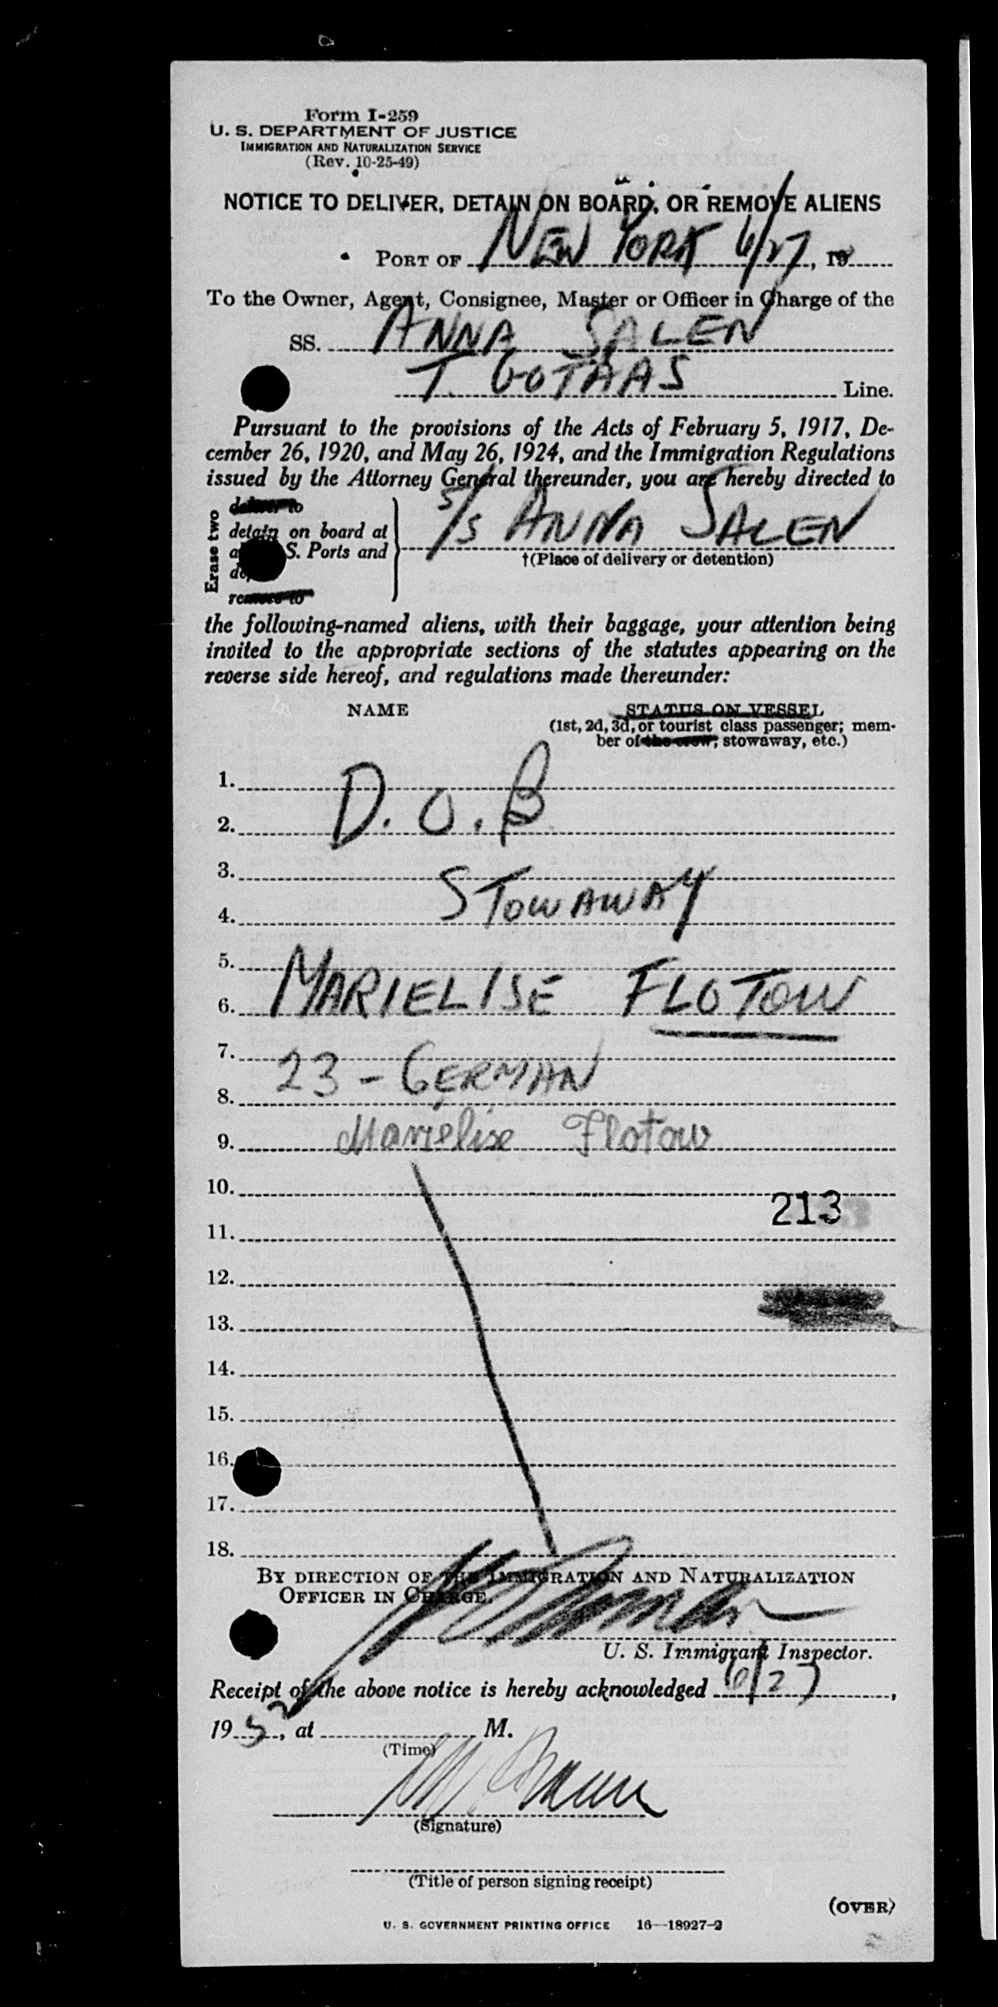 Form I-259
U. S. DEPARTMENT OF JUSTICE
IMMIGRATION AND NATURALIZATION SERVICE
(Rev. 10-25-49)
NOTICE TO DELIVER, DETAIN ON BOARD, OR REMOVE ALIENS
PORT OF NEW YORK 6/27, 19
To the Owner, Agent, Consignee, Master or Officer in Charge of the
SS. ANNA SALEN
T. GOTAAS Line.
Pursuant to the provisions of the Acts of February 5, 1917, De-
cember 26, 1920, and May 26, 1924, and the Immigration Regulations
issued by the Attorney General thereunder, you are hereby directed to
Erase two
deliver to
detain on board at
S. Ports and
remove to
S/S ANNA SALEN
†(Place of delivery or detention)
the following-named aliens, with their baggage, your attention being
invited to the appropriate sections of the statutes appearing on the
reverse side hereof, and regulations made thereunder:
NAME STATUS ON VESSEL
(1st, 2d, 3d, or tourist class passenger; mem-
ber of the crew; stowaway, etc.)
1.
2. D.O.B.
3.
4. STOWAWAY
5.
6. MARIELISE FLOTOW
7.
8. 23 - GERMAN
9. Marielise Flotow
10.
213
11.
12.
13.
14.
15.
16.
17.
18.
BY DIRECTION OF THE IMMIGRATION AND NATURALIZATION
OFFICER IN CHARGE.
U. S. Immigrant Inspector.
Receipt of the above notice is hereby acknowledged 6/27,
1952, at M.
(Time)
(Signature)
(Title of person signing receipt)
(OVER)
U. S. GOVERNMENT PRINTING OFFICE 16—18927-2